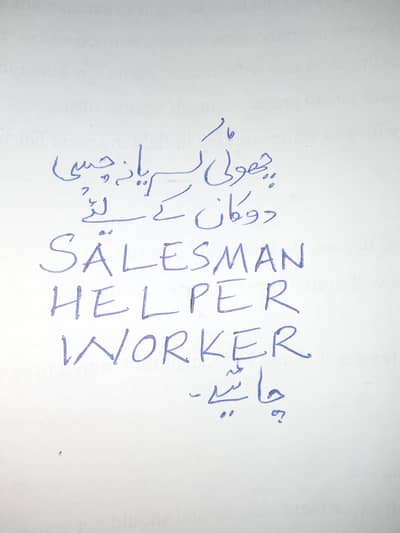 چھوٹی کسریانہ جیسی
دوکان کے لئے
SALESMAN
HELPER
WORKER
چائیے۔